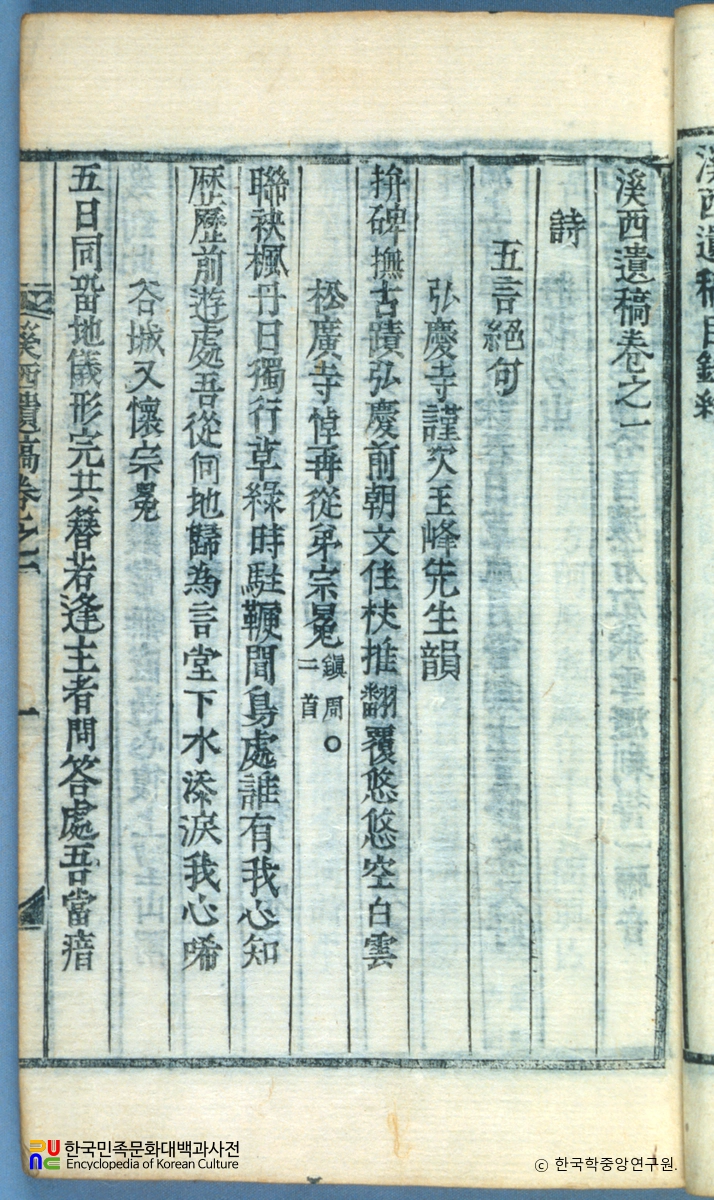 溪西遺稿目錄終
溪西遺稿卷之一
詩
五言絕句
弘慶寺謹次玉峰先生韻
捹碑撫古蹟弘慶前朝文佳枝推翻覆悠悠空白雲
松廣寺悼再從弟宗冕鎭周○二首
聯袂楓丹日獨行草綠時駐鞭聞鳥處誰有我心知
歷歷前遊處吾從何地歸為言堂下水添淚我心唏
谷城又懷宗冕
五日同畱地儀形完共簪若逢主者問答處吾當瘖
溪西遺稿卷之一
一
한국민족문화대백과사전
Encyclopedia of Korean Culture
ⓒ 한국학중앙연구원.